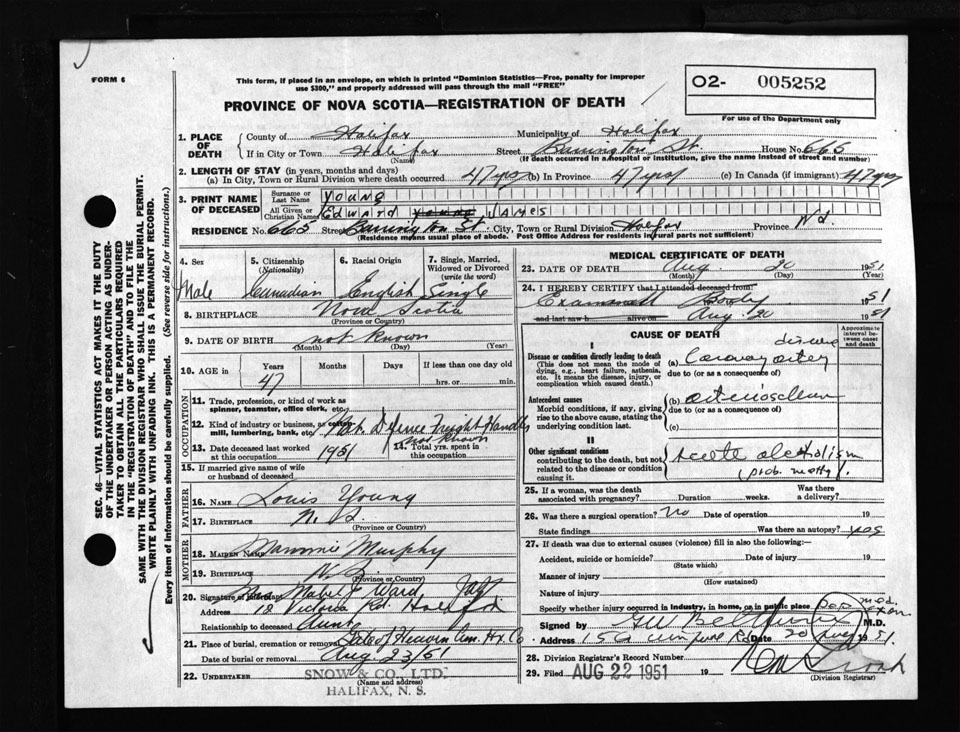 FORM 6
This form, if placed in an envelope, on which is printed "Dominion Statistics—Free, penalty for improper
use $300," and properly addressed will pass through the mail "FREE"
02- 005252
For use of the Department only
PROVINCE OF NOVA SCOTIA—REGISTRATION OF DEATH
1. PLACE OF DEATH
County of Halifax Municipality of Halifax
If in City or Town Halifax Street Barrington St. House No. 665
(Name) (If death occurred in a hospital or institution, give the name instead of street and number)
2. LENGTH OF STAY (in years, months and days)
(a) In City, Town or Rural Division where death occurred 47 yrs (b) In Province 47 yrs (c) In Canada (if immigrant) 47 yrs
3. PRINT NAME OF DECEASED
Surname or Last Name Young
All Given or Christian Names Edward Young James
RESIDENCE No. 665 Street Barrington St. City, Town or Rural Division Halifax Province N.S.
(Residence means usual place of abode. Post Office Address for residents in rural parts not sufficient)
4. Sex Male
5. Citizenship (Nationality) Canadian
6. Racial Origin English
7. Single, Married, Widowed or Divorced (write the word) Single
8. BIRTHPLACE Nova Scotia
(Province or Country)
9. DATE OF BIRTH not known
(Month) (Day) (Year)
10. AGE in Years 47 Months Days If less than one day old
hrs. or min.
OCCUPATION
11. Trade, profession, or kind of work as
spinner, teamster, office clerk, etc.
12. Kind of industry or business, as cotton
mill, lumbering, bank, etc. Nat. Defence Freight Handler
13. Date deceased last worked
at this occupation 1951
14. Total yrs. spent in
this occupation not known
15. If married give name of wife
or husband of deceased
FATHER
16. NAME Louis Young
17. BIRTHPLACE N.S.
(Province or Country)
MOTHER
18. MAIDEN NAME Mammie Murphy
19. BIRTHPLACE N.S.
(Province or Country)
20. Signature of informant Mrs Mabel F Ward
Address 12 Victoria Rd. Halifax
Relationship to deceased Aunt
21. Place of burial, cremation or removal Gate of Heaven Cem. Hx. Co
Date of burial or removal Aug. 23/51
22. UNDERTAKER SNOW & CO., LTD.
HALIFAX, N. S.
MEDICAL CERTIFICATE OF DEATH
23. DATE OF DEATH Aug. 20 1951
(Month) (Day)
24. I HEREBY CERTIFY that I attended deceased from
Examined Body 1951
and last saw h alive on Aug. 20 1951
CAUSE OF DEATH
Approximate interval between onset and death
I
Disease or condition directly leading to death
(This does not mean the mode of
dying, e.g., heart failure, asthenia,
etc. It means the disease, injury, or
complication which caused death.)
(a) Coronary artery disease
due to (or as a consequence of)
Antecedent causes
Morbid conditions, if any, giving
rise to the above cause, stating the
underlying condition last.
(b) arteriosclerosis
due to (or as a consequence of)
(c)
II
Other significant conditions
contributing to the death, but not
related to the disease or condition
causing it.
acute alcoholism
(prob. methyl).
25. If a woman, was the death
associated with pregnancy? Duration weeks. Was there
a delivery?
26. Was there a surgical operation? No Date of operation 19
State findings Was there an autopsy? yes
27. If death was due to external causes (violence) fill in also the following:—
Accident, suicide or homicide? Date of injury 19
(State which)
Manner of injury
(How sustained)
Nature of injury
Specify whether injury occurred in industry, in home, or in public place
Signed by M.D.
Address Date 20 Aug 1951.
28. Division Registrar's Record Number
29. Filed AUG 22 1951 19
(Division Registrar)
SEC. 46-VITAL STATISTICS ACT MAKES IT THE DUTY
OF THE UNDERTAKER OR PERSON ACTING AS UNDER-
TAKER TO OBTAIN ALL THE PARTICULARS REQUIRED
IN THE "REGISTRATION OF DEATH" AND TO FILE THE
SAME WITH THE DIVISION REGISTRAR WHO SHALL ISSUE THE BURIAL PERMIT.
WRITE PLAINLY WITH UNFADING INK. THIS IS A PERMANENT RECORD.
Every item of information should be carefully supplied. (See reverse side for instructions.)